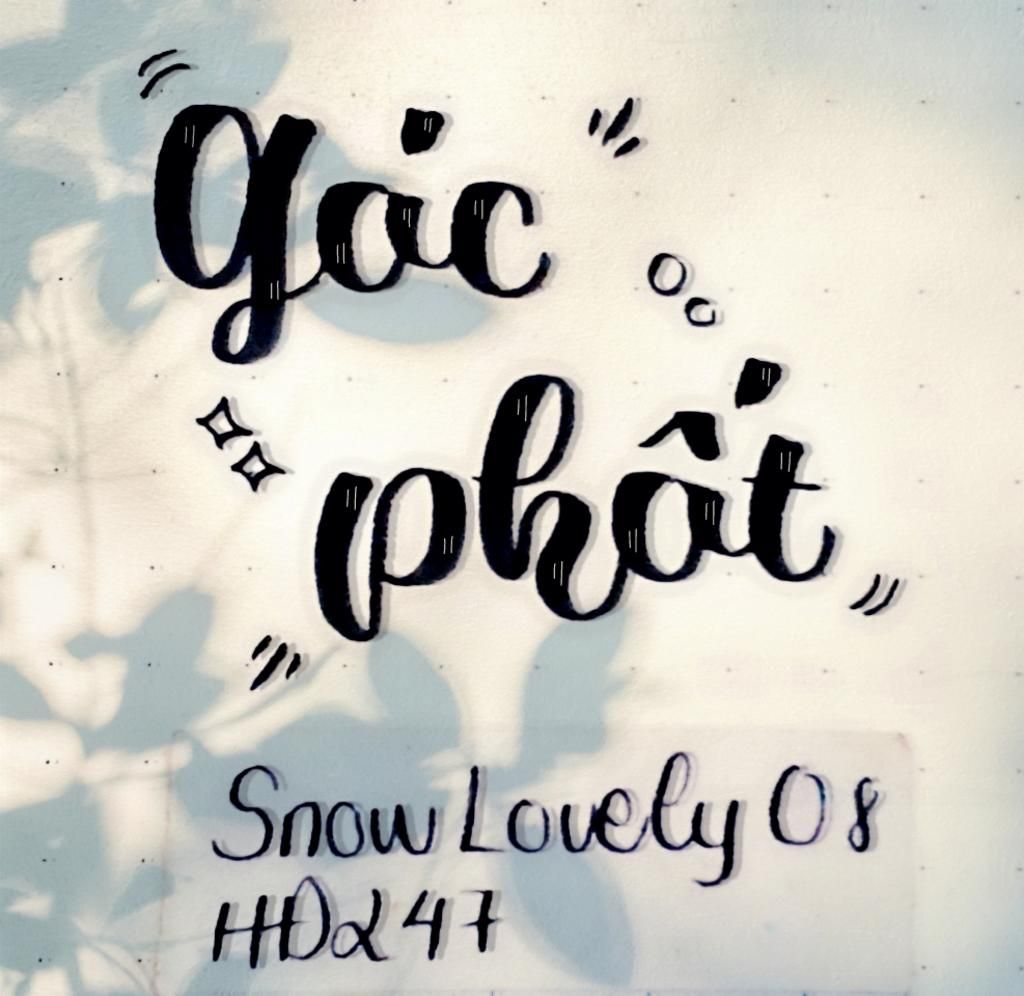 gác
phất
Snow Lovely 08
HĐ247